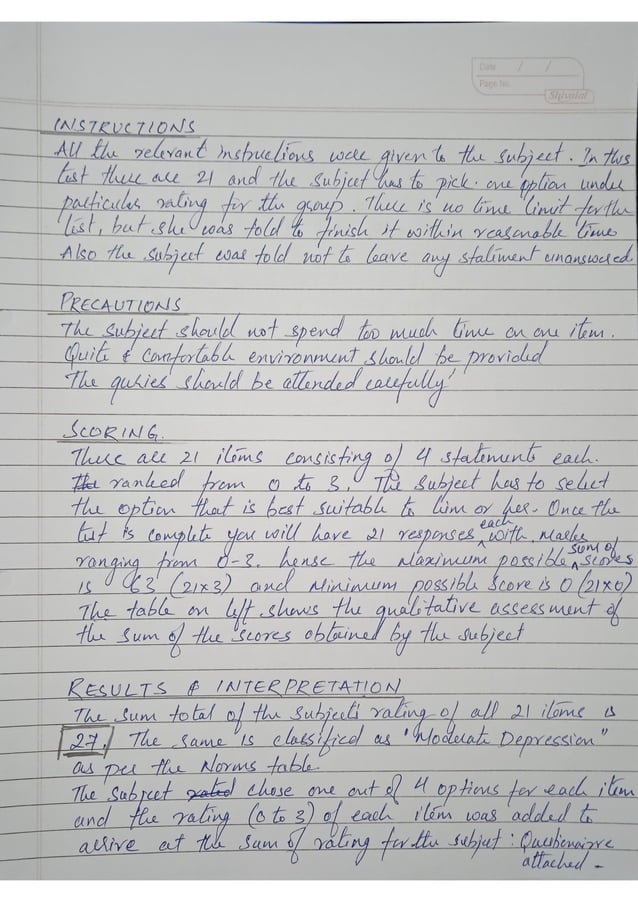 Date / /
Page No.
Shivalal
INSTRUCTIONS
All the relevant instructions were given to the subject. In this
test there are 21 and the subject has to pick one option under
particular rating for the group. There is no time limit for the
list, but she was told to finish it within reasonable time
Also the subject was told not to leave any statiment unanswered
PRECAUTIONS
The subject should not spend too much time on one item.
Quite & comfortable environment should be provided
The quries should be attended carefully
SCORING.
There are 21 items consisting of 4 statements each.
The ranked from 0 to 3. The subject has to select
the option that is best suitable to him or her. Once the
test is complete you will have 21 responses each with marks
ranging from 0-3. hense the Maximum possible sum of scores
is 63 (21x3) and Minimum possible score is 0 (21x0)
The table on left shows the qualitative assessment of
the sum of the scores obtained by the subject
RESULTS & INTERPRETATION
The sum total of the subject's rating of all 21 items is
27. The same is classified as "Moderate Depression"
as per the Norms table.
The subject rated chose one out of 4 options for each item
and the rating (0 to 3) of each item was added to
arrive at the sum of rating for the subject: Questionairre
attached -